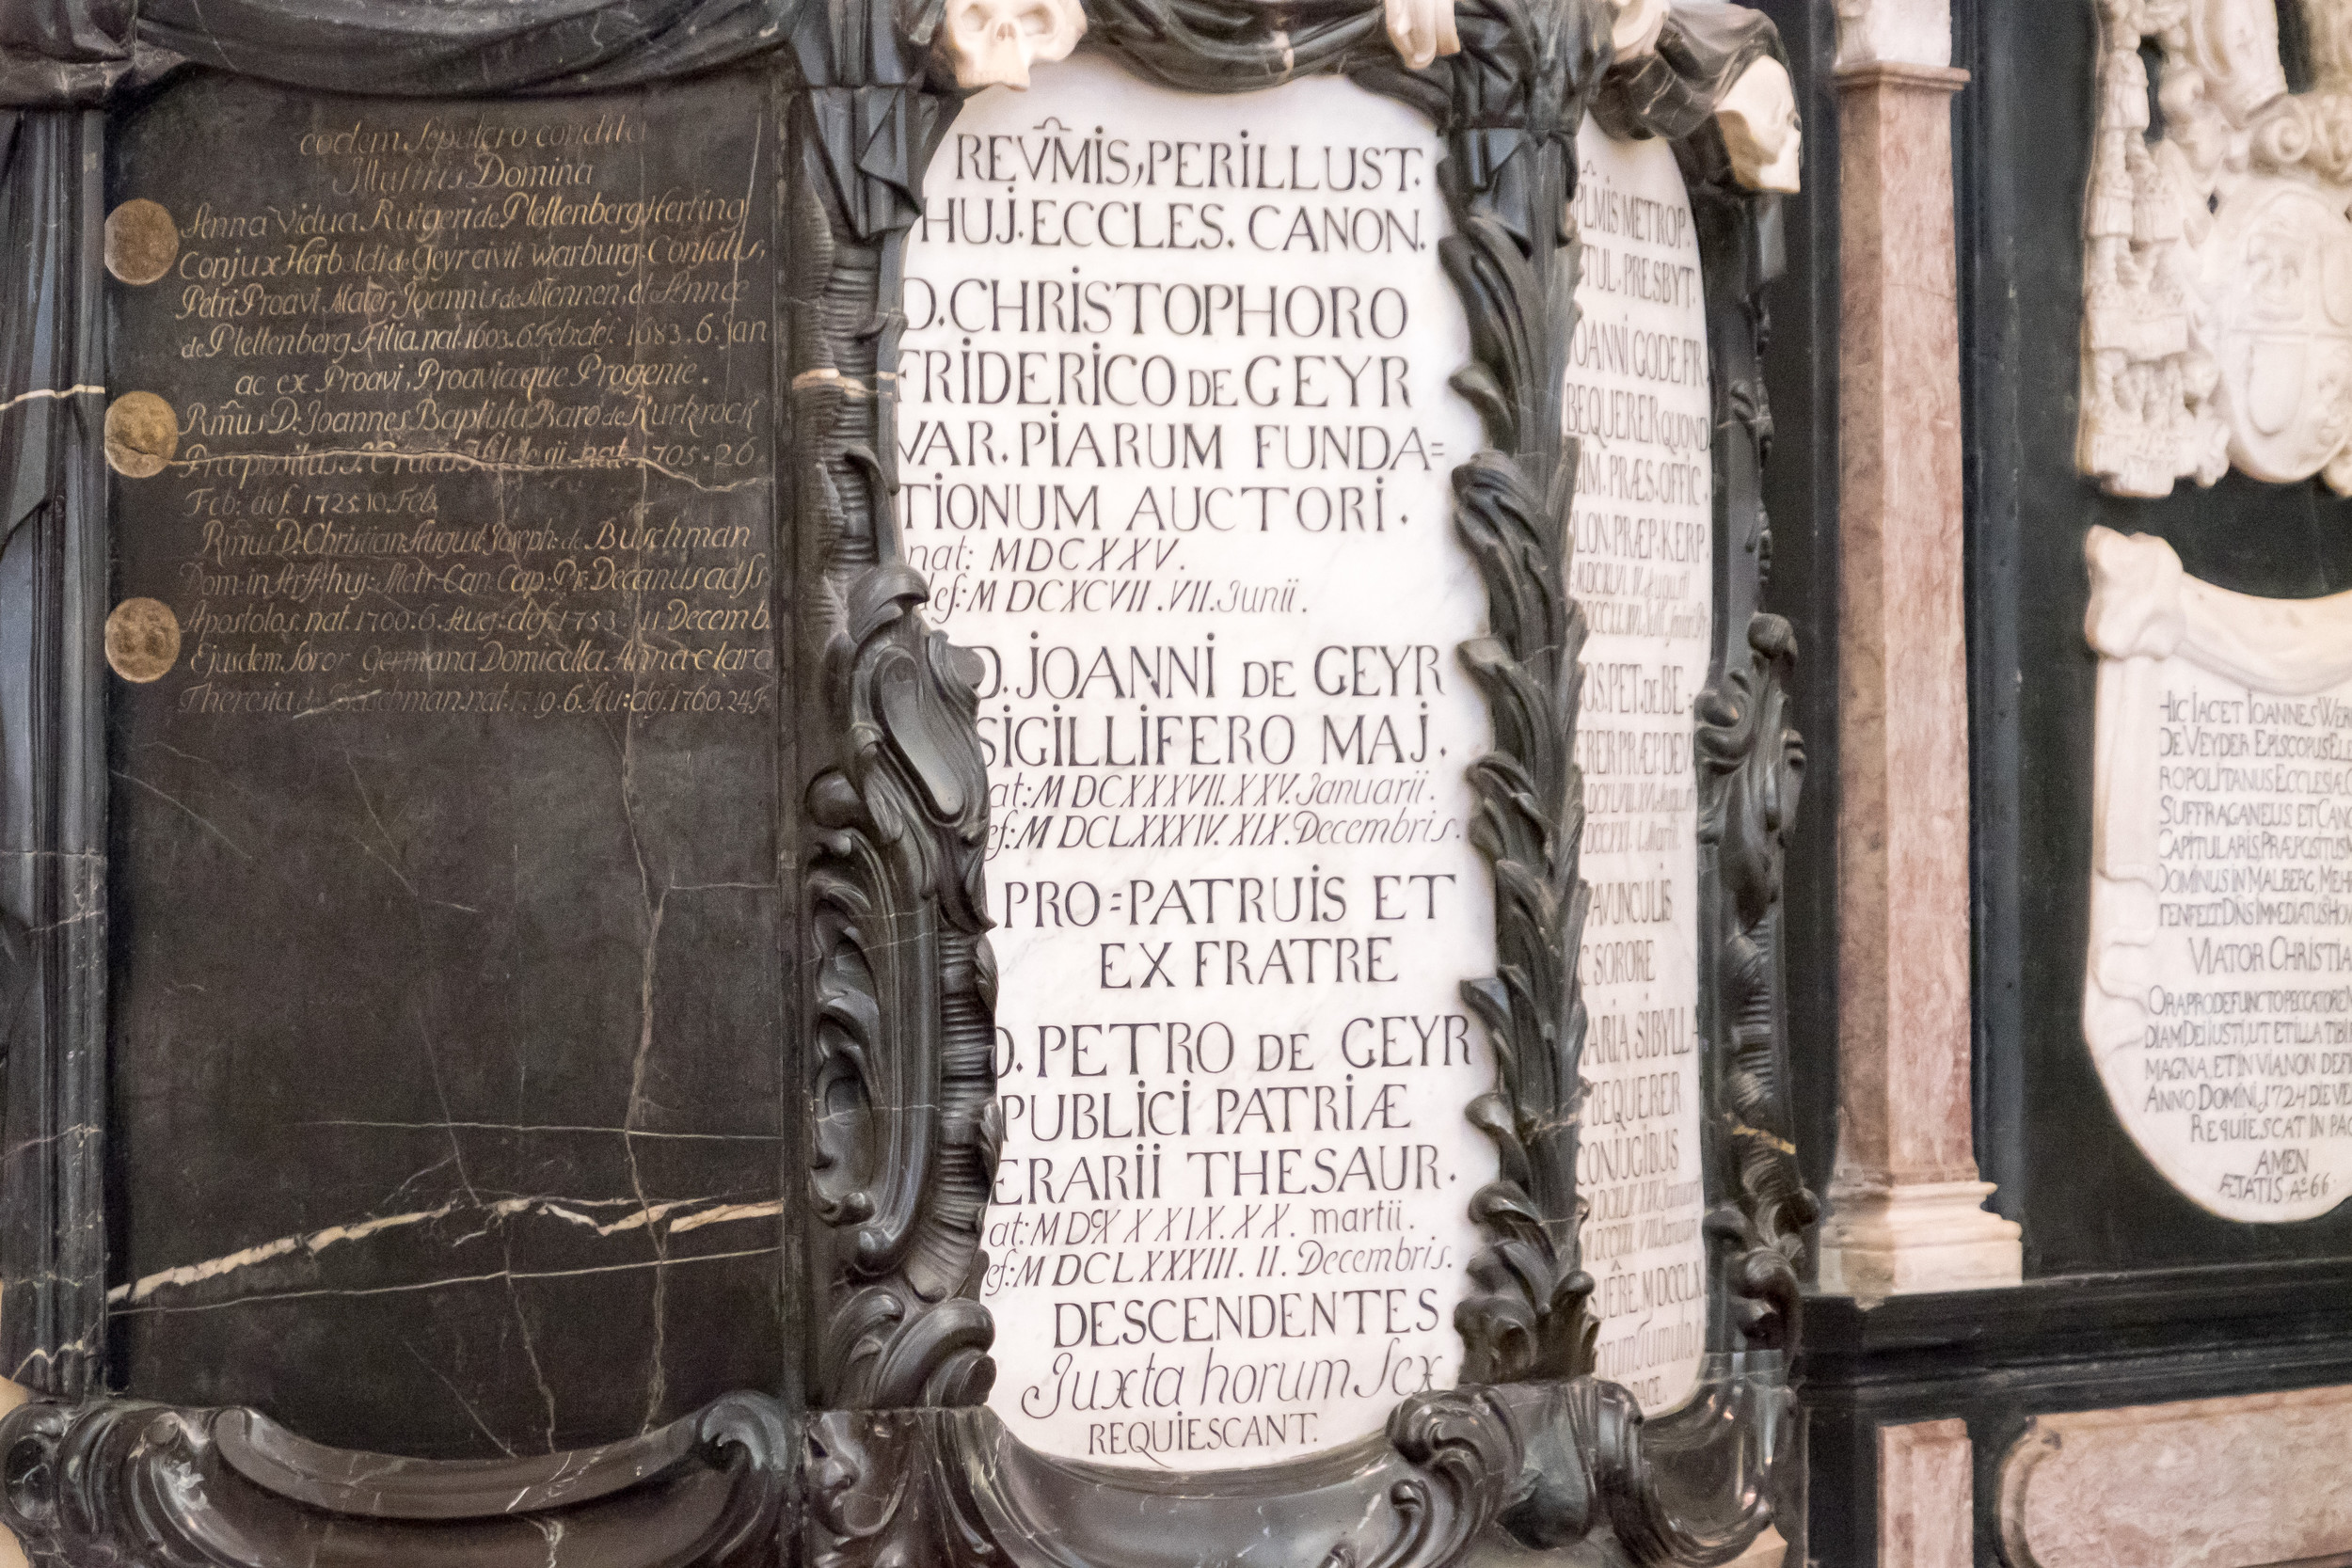 eodem Sepulcro condita
Illustris Domina
Anna Vidua Rutgeri de Plettenberg Herting
Conjux Herboldi de Geyr civit. Warburg. Consulis,
Petri Proavi Mater, Joannis de Mennen, et Annæ
de Plettenberg Filia. nat. 1603. 6. Feb: def. 1683. 6. Jan
ac ex Proavi, Proaviaque Progenie.
Rm̃us D. Joannes Baptista Baro de Kurtzrock
Præpositus S. Crucis nat. 1705. 26
Feb: def. 1725. 10. Feb.
Rm̃us D. Christian August Joseph de Buschman
Dom: in huj: Metr. Can. Cap. Pr. Decanus ad SS
Apostolos. nat. 1700. 6. Aug: def. 1753. 11. Decemb.
Ejusdem Soror Germana Domicella Anna Clara
Theresia de Buschman. nat. 6. Au: def. 1760. 24.
REVM̂IS, PERILLUST.
HUJ. ECCLES. CANON.
D. CHRISTOPHORO
FRIDERICO DE GEYR
VAR. PIARUM FUNDA=
TIONUM AUCTORI.
nat: MDCXXV.
def: MDCXCVII. VII. Junii.
D. JOANNI DE GEYR
SIGILLIFERO MAJ.
at: MDCXXXVII. XXV. Januarii.
ef: MDCLXXXIV. XIX. Decembris.
PRO=PATRUIS ET
EX FRATRE
D. PETRO DE GEYR
PUBLICI PATRIÆ
ERARII THESAUR.
at: MDCXXXIX. XX. martii.
ef: MDCLXXXIII. II. Decembris.
DESCENDENTES
Juxta horum Sex
REQUIESCANT.
PLMIS METROP.
TUL. PRESBYT.
OANNI GODEFR
BEQUERER QUOND
IM. PRÆS. OFFIC.
LON. PRÆP. KERP
OS. PET. DE BE=
ERER PRÆP. DE
AVUNCULIS
C SORORE
ARIA SIBYLLA
BEQUERER
CONJUGIBUS
IÊRE MDCCLX
PACE.
HIC IACET IOANNES WE
DE VEYDER EPISCOPUS E
ROPOLITANUS ECCLESIÆ
SUFFRAGANEUS ET CAN
CAPITULARIS PRÆPOSITUS
DOMINUS IN MALBERG, MEH
TENFELT DNS IMMEDIATUS H
VIATOR CHRISTIA
ORA PRO DEFUNCTO PECCATORE
DIAM DEI IUSTI, UT ET ILLA TIBI
MAGNA, ET IN VIA NON DEFI
ANNO DOMINI, 1724 DIE VE
REQUIESCAT IN PAC
AMEN
ÆTATIS Aº 66